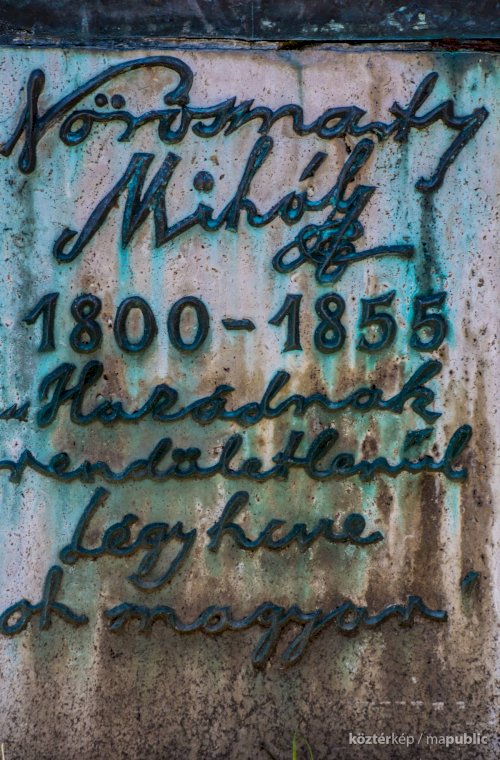 Vörösmarty
Mihály
1800-1855
„Hazádnak
rendületlenűl
Légy híve
oh magyar"
köztérkép / mapublic